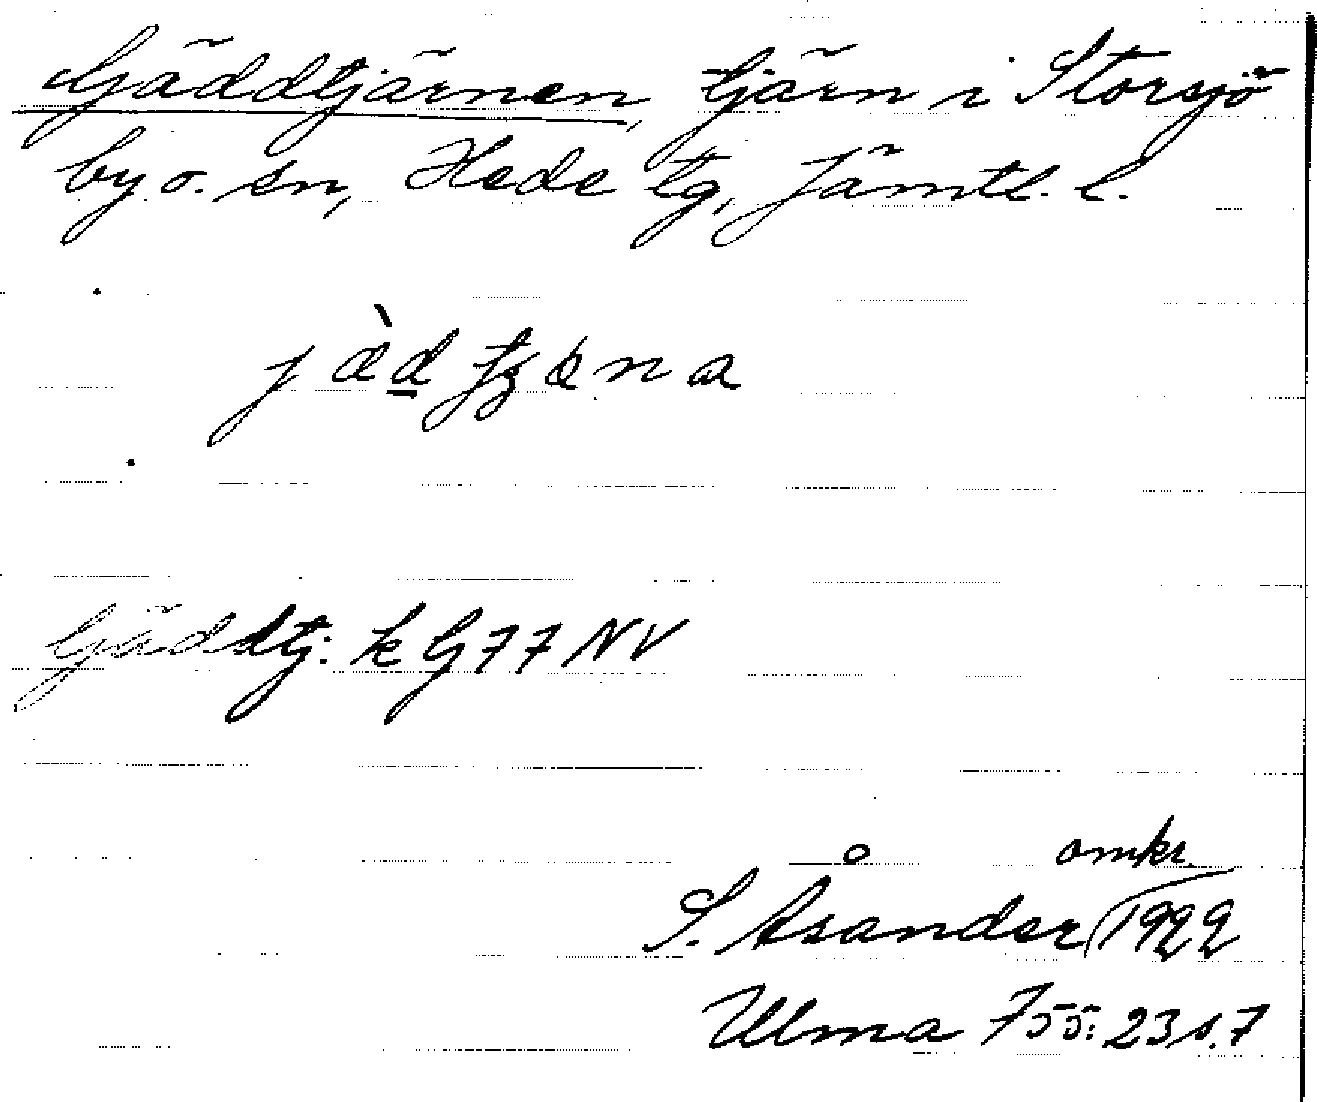 Gäddtjärnen, tjärn i Storsjö
by o. sn, Hede tg, Jämtl. l.
Gäddtj: k G 77 NV
omkr.
S. Åsander 1922
Ulma 755:23 s. 7